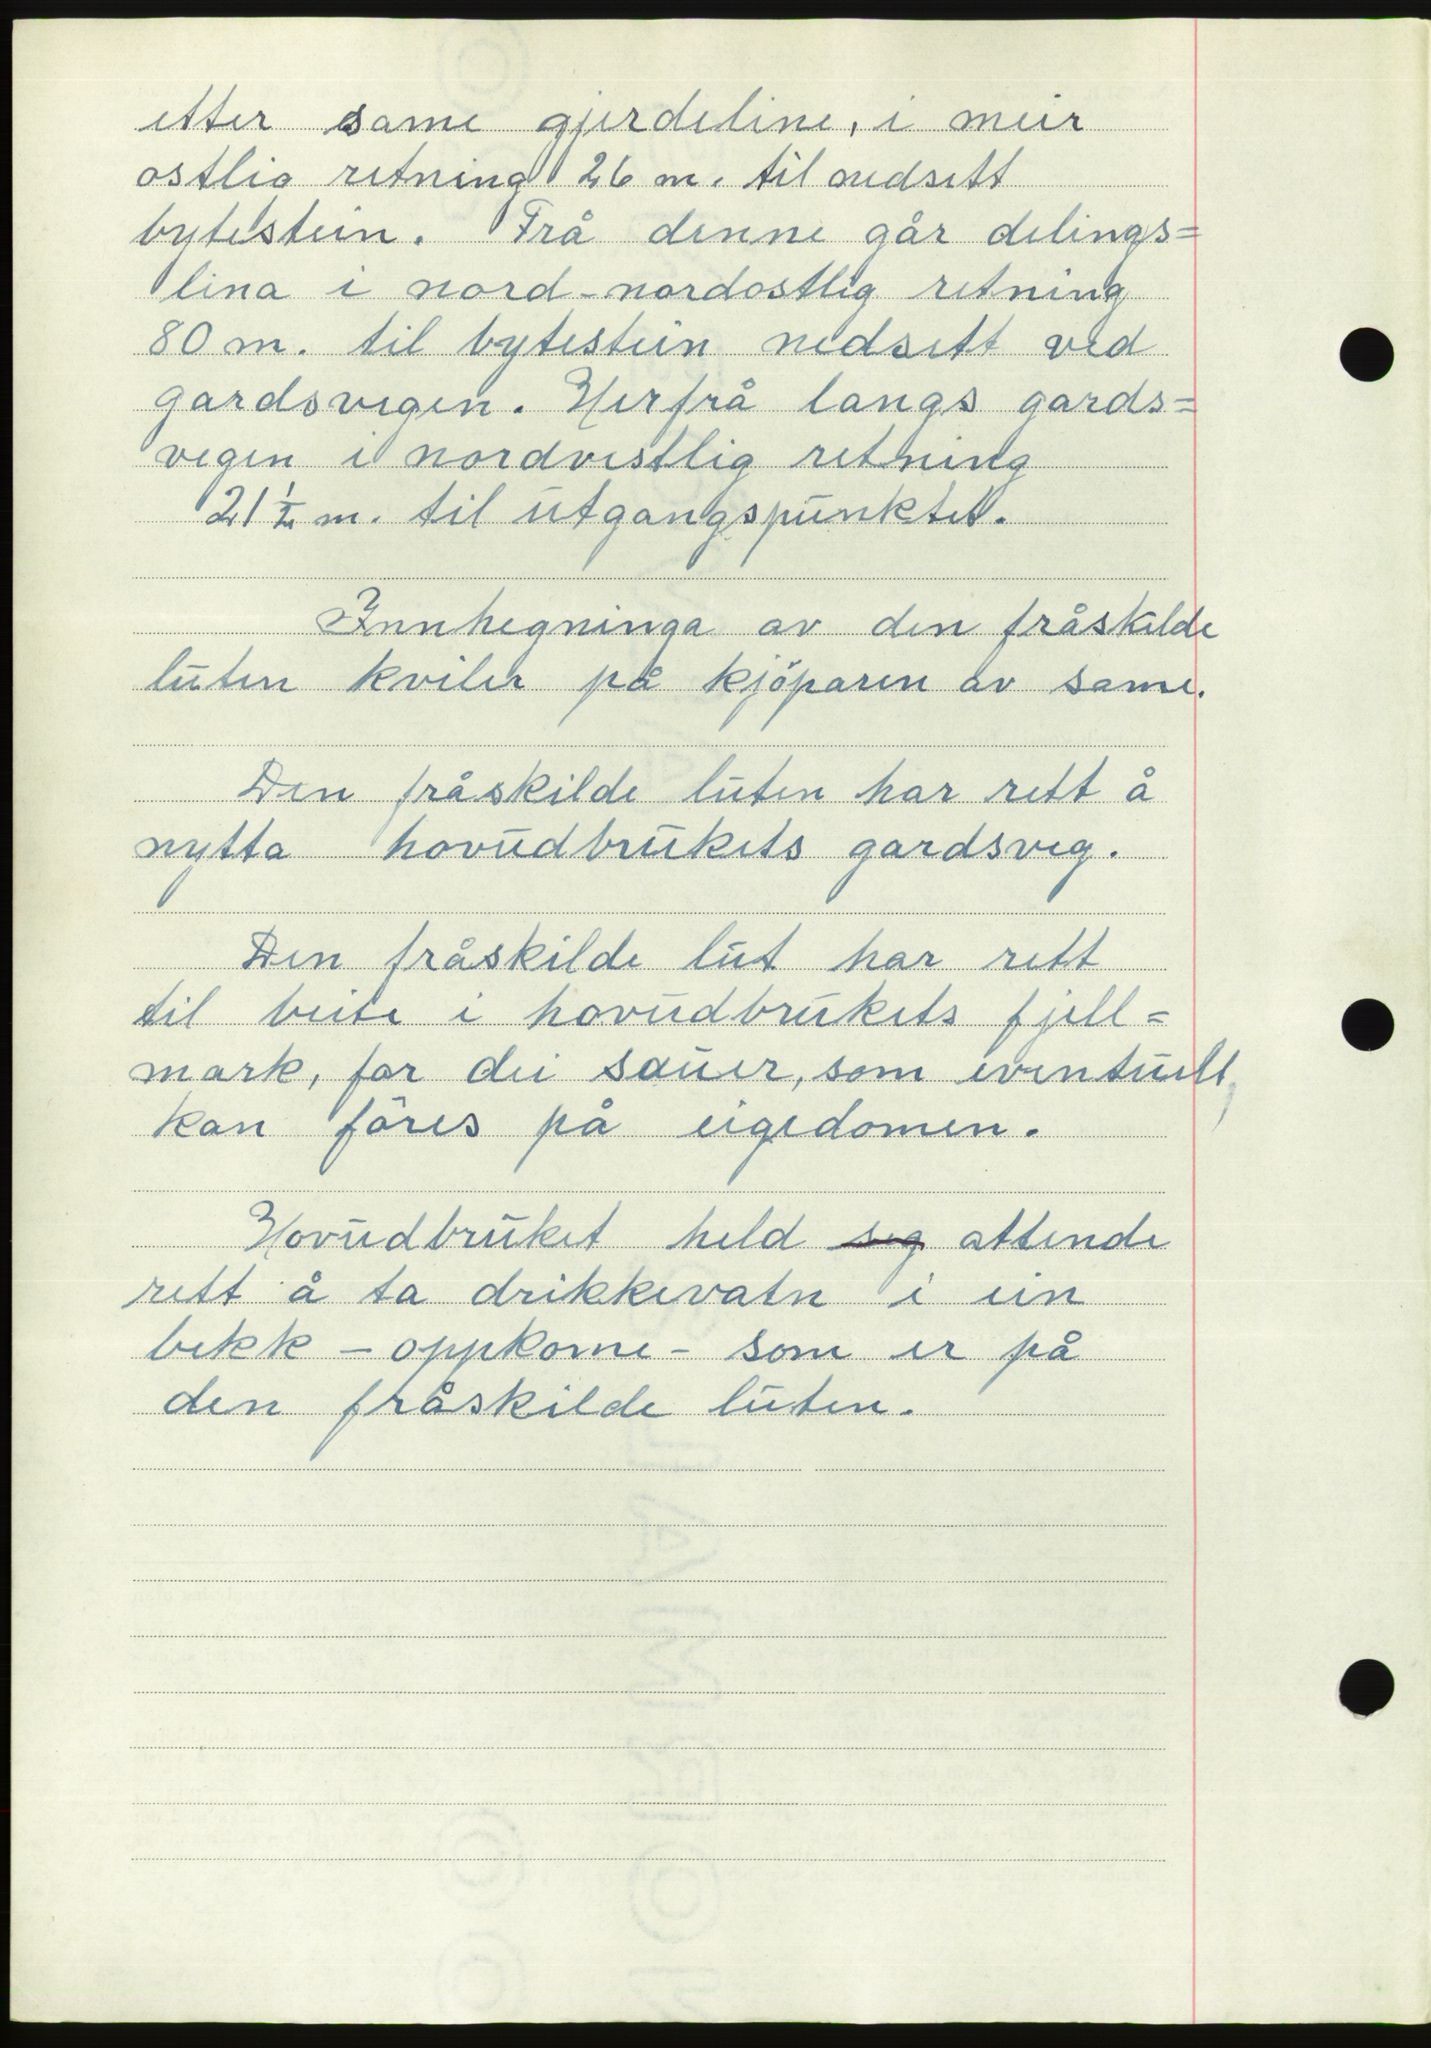 etter same gjerdeline, i meir
ostlig retning 26 m. til nedsett
bytestein. Frå denne går delings=
lina i nord-nordostlig retning
80 m. til bytestein nedsett ved
gardsvegen. Herfrå langs gards=
vegen i nordvestlig retning
21 ½ m. til utgangspunktet.
Innhegninga av den fråskilde
luten kviler på kjöparen av same.
Den fråskilde luten har rett å
nytta hovudbrukets gardsveg.
Den fråskilde lut har rett
til beite i hovudbrukets fjell=
mark, for dei sauer, som eventuelt
kan föres på eigedomen.
Hovudbruket held seg attende
rett å ta drikkevatn i ein
bekk - oppkome - som er på
den fråskilde luten.